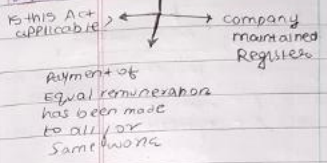 is this Act
applicable?
company
maintained
Register
Payment of
Equal remuneration
has been made
to all for
Same work